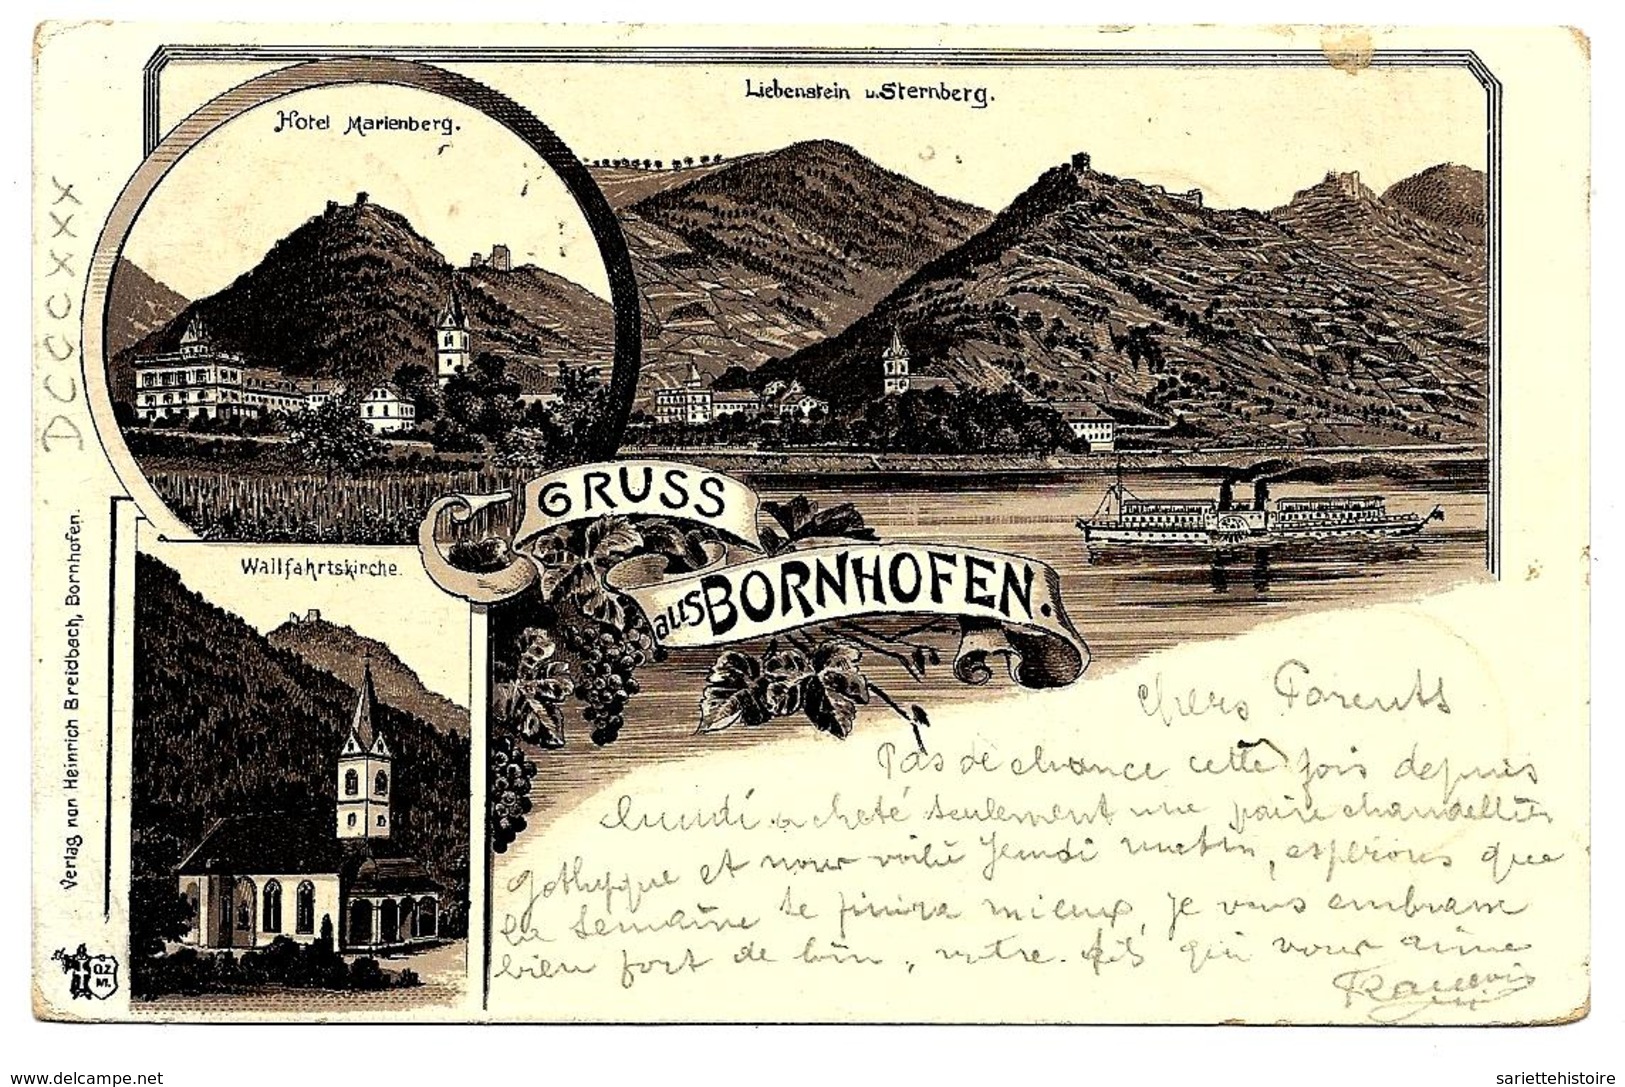 Liebenstein u. Sternberg.
Hotel Marienberg.
DCCCXXX
GRUSS
aus BORNHOFEN.
Wallfahrtskirche.
Verlag von Heinrich Breidbach, Bornhofen.
O.Z.
M.
Chers Parents
Pas de chance cette fois depuis
lundi acheté seulement une paire chandeliers
gothyque et nous voilà Jeudi matin, espérons que
la semaine se finira mieux, je vous embrasse
bien fort de loin, votre fils qui vous aime
François
delcampe.net
sariettehistoire